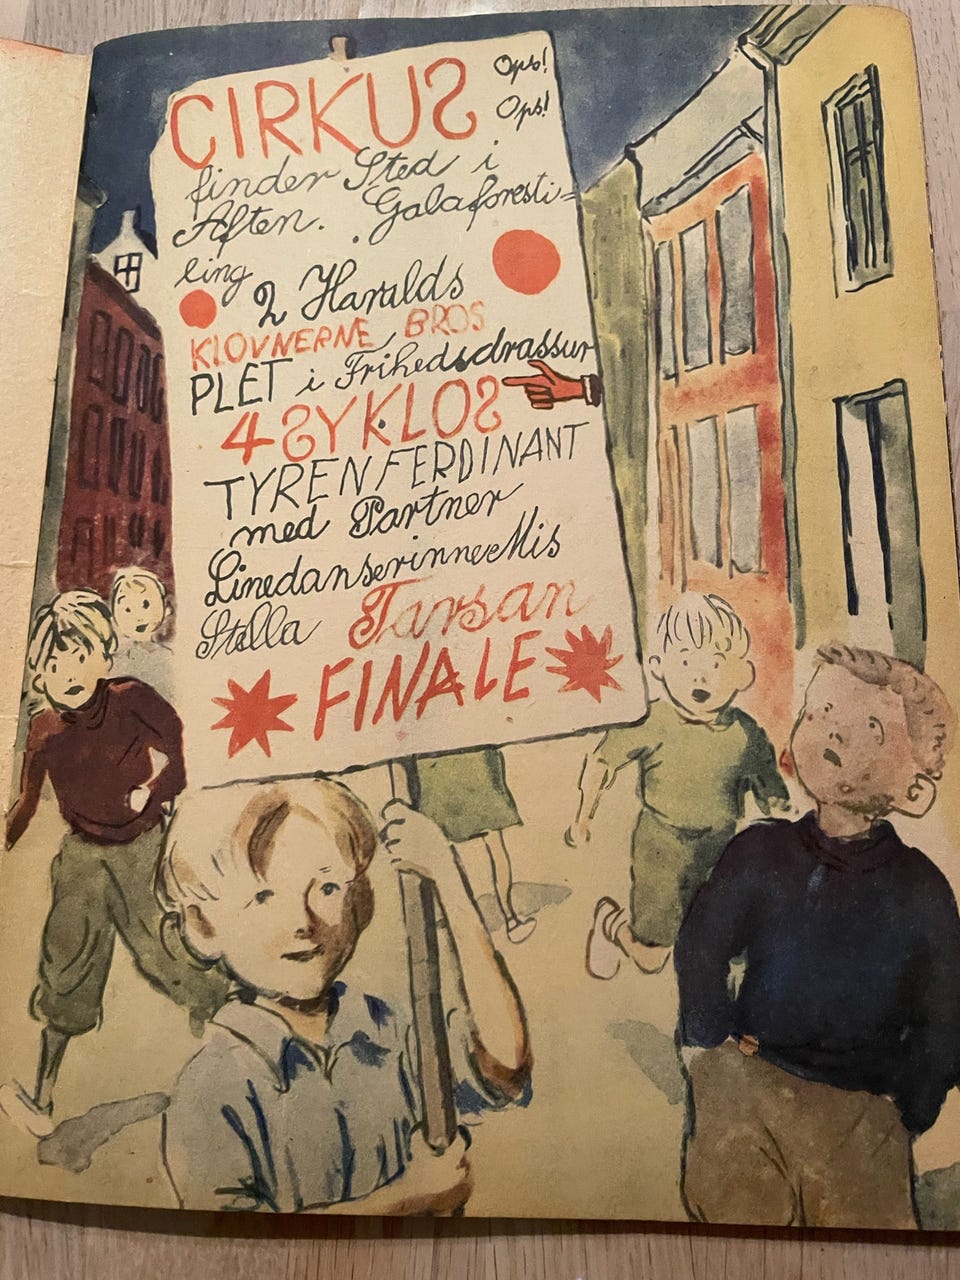 CIRKUS Ops!
Ops!
finder Sted i
Aften. Galaforesti=
ling
2 Haralds
KLOVNERNE BROS
PLET i Frihedsdrassur
4 SYKLOS
TYREN FERDINANT
med Partner
Linedanserinne Mis
Stella Tarsan
FINALE